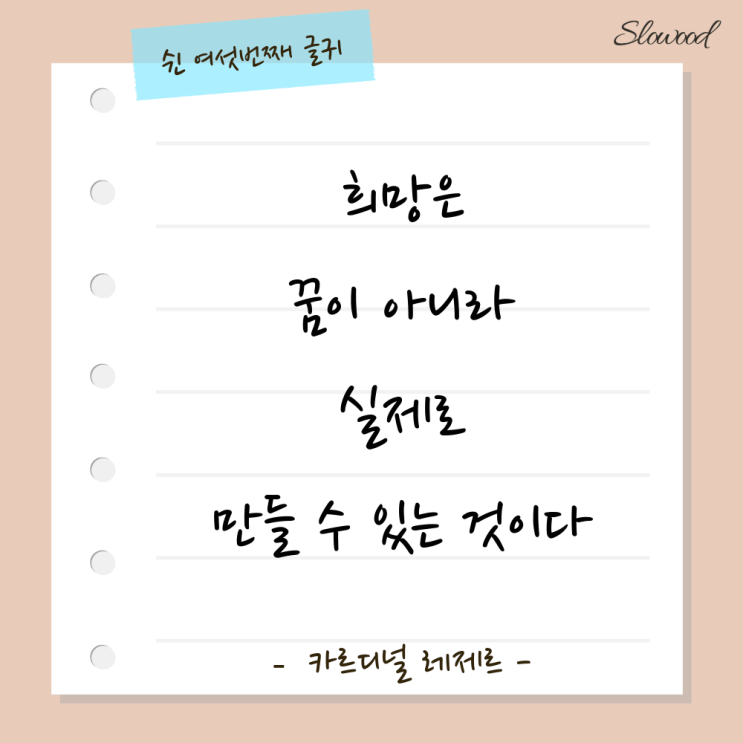 Slowood
쉰 여섯번째 글귀
희망은
꿈이 아니라
실제로
만들 수 있는 것이다
- 카르디널 레제르 -